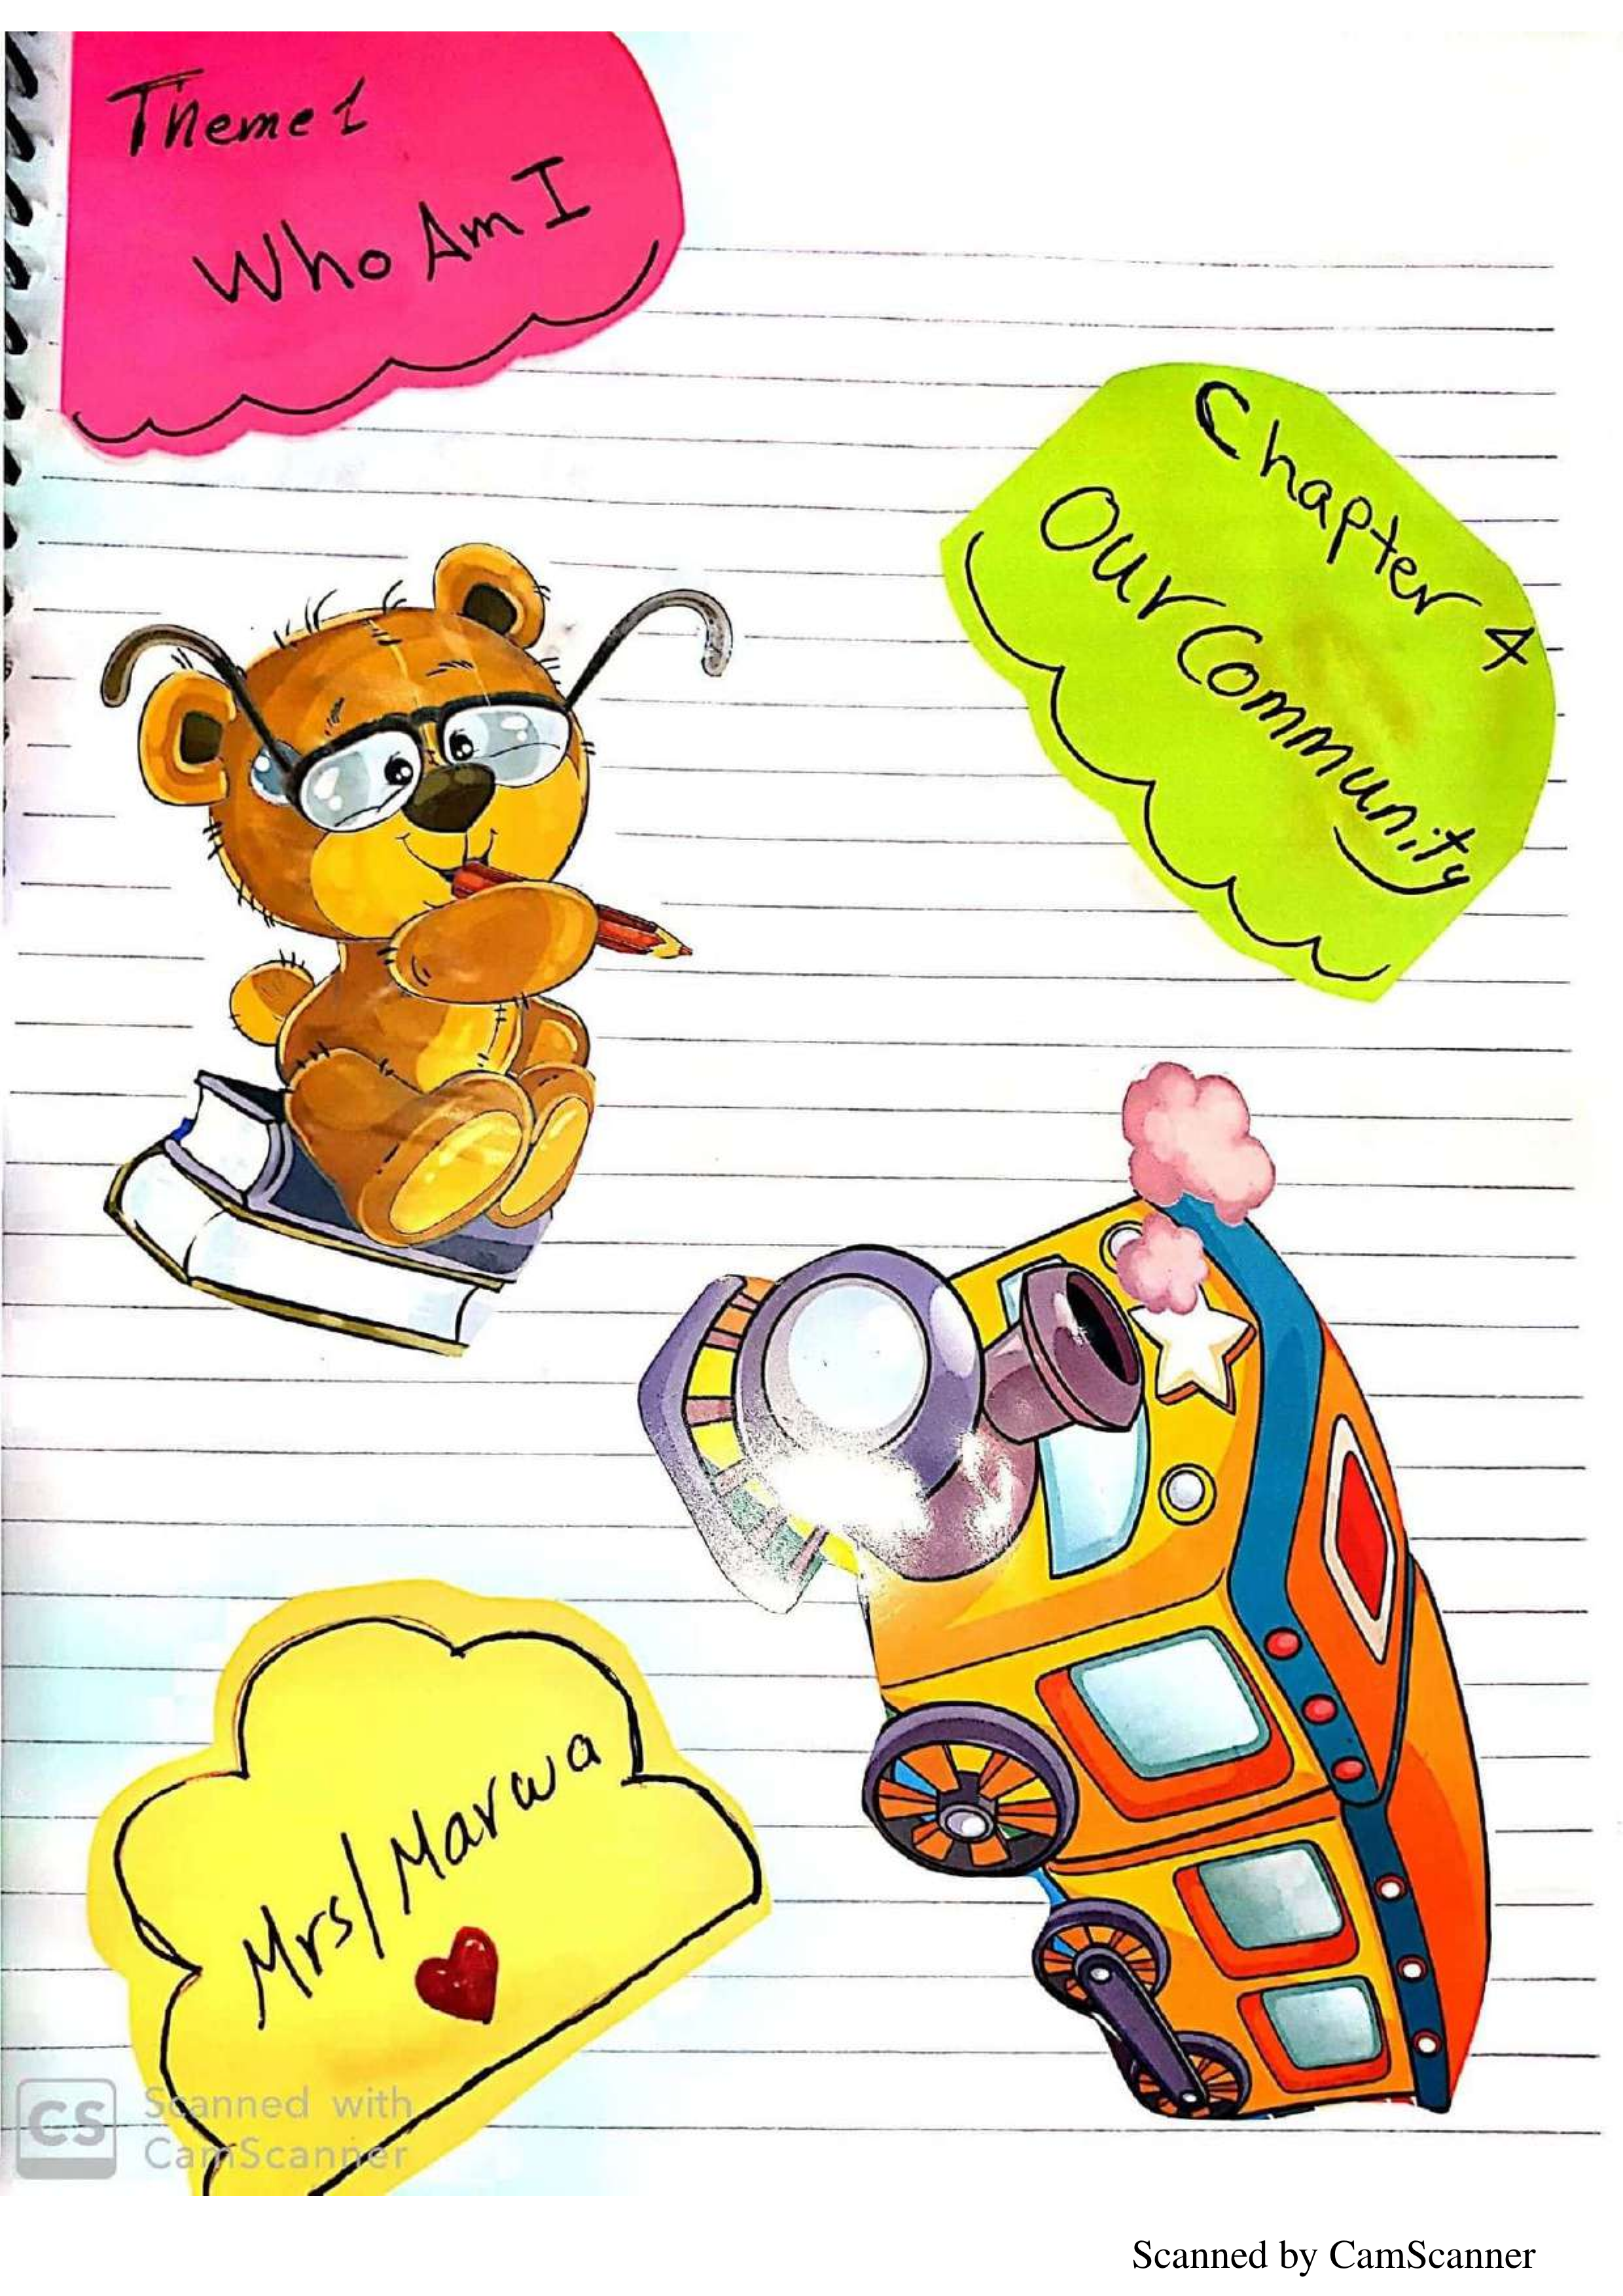 Theme 1
Who Am I
Chapter 4
Our Community
Mrs/ Marwa
CS
Scanned with
CamScanner
Scanned by CamScanner